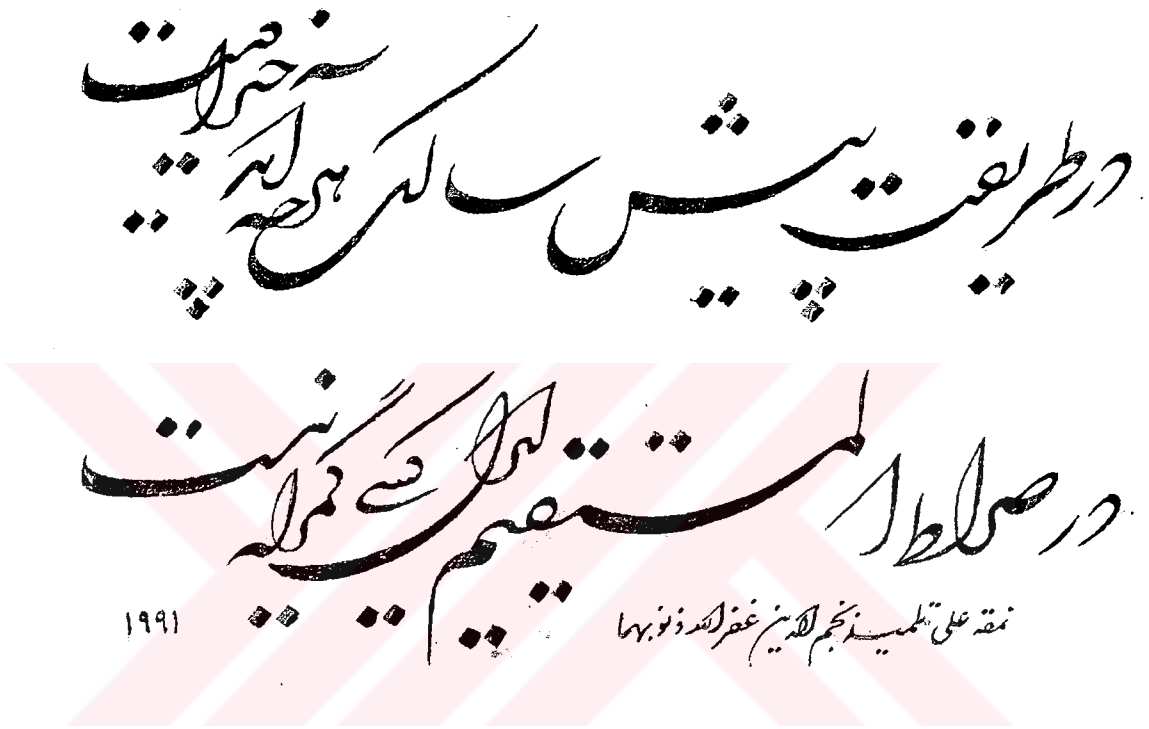 در طریقت پیش سالک هر چه آید خیر اوست
در صراط المستقیم ای دل کسی گمراه نیست
نمقه علی تلمیذ نجم الدین غفر الله ذنوبهما
۱۹۹۱